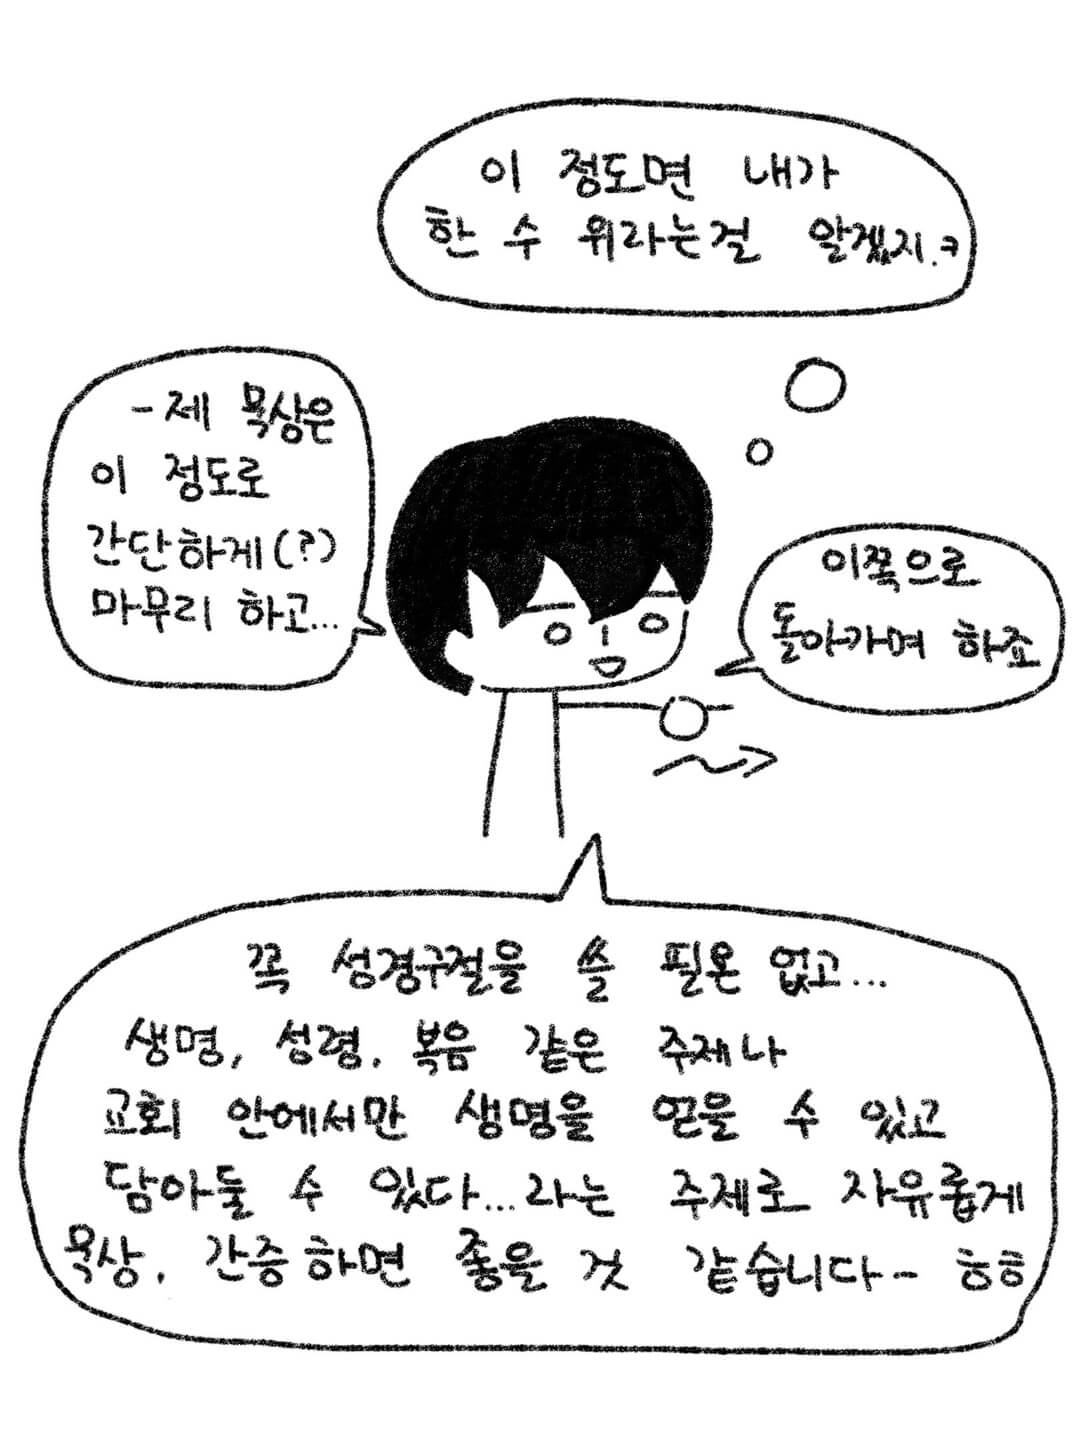 이 정도면 내가
한 수 위라는걸 알겠지.ㅋ
-제 묵상은
이 정도로
간단하게(?)
마무리 하고...
이쪽으로
돌아가며 하죠
꼭 성경구절을 쓸 필욘 없고...
생명, 성령, 복음 같은 주제나
교회 안에서만 생명을 얻을 수 있고
담아둘 수 있다...라는 주제로 자유롭게
묵상, 간증하면 좋을 것 같습니다~ ㅎㅎ